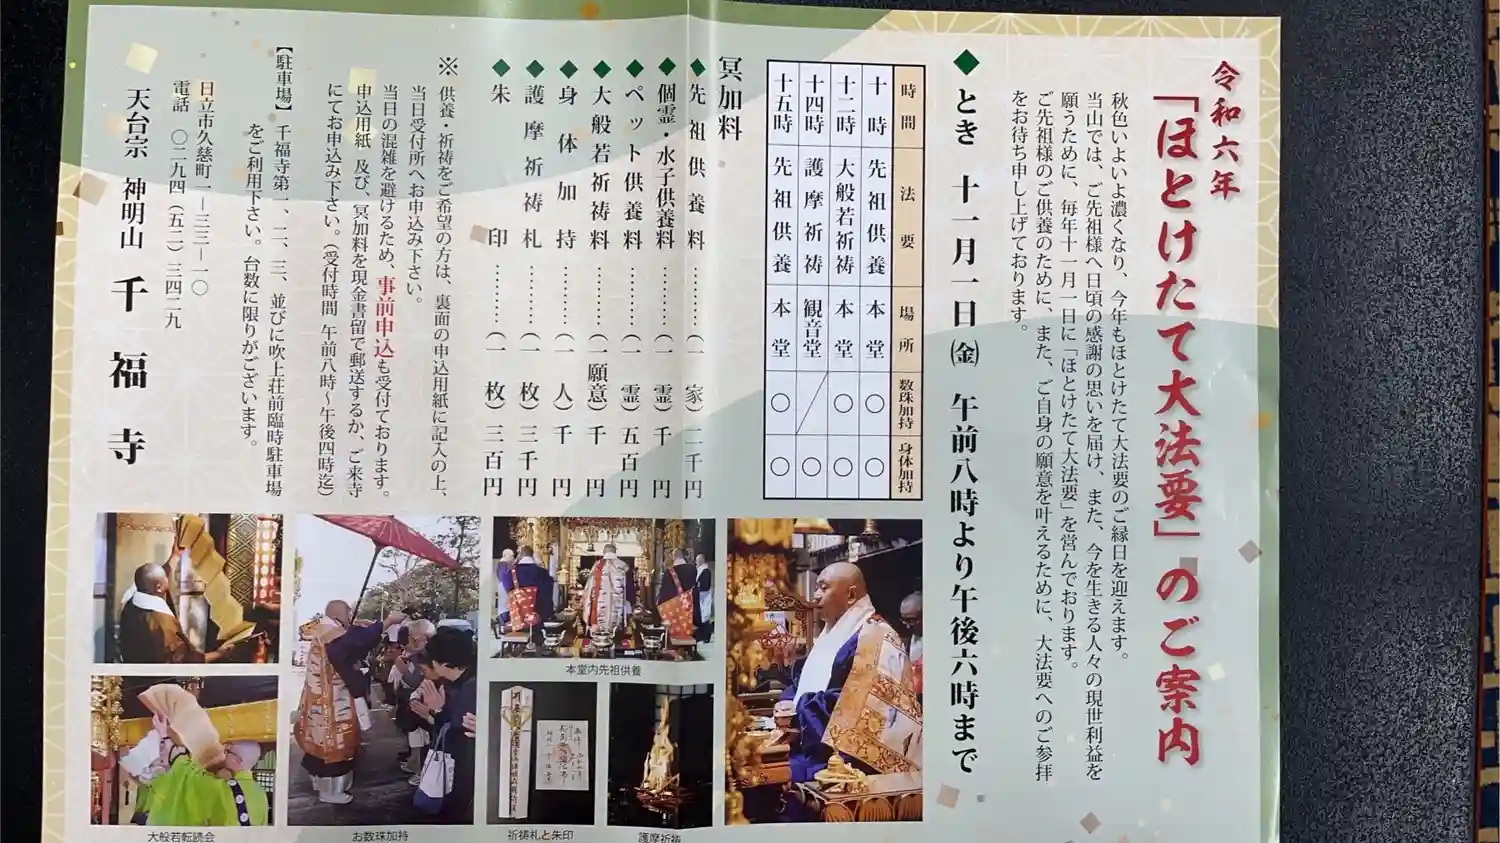 令和六年
「ほとけたて大法要」のご案内
秋色いよいよ濃くなり、今年もほとけたて大法要のご縁日を迎えます。
当山では、ご先祖様へ日頃の感謝の思いを届け、また、今を生きる人々の現世利益を
願うために、毎年十一月一日に「ほとけたて大法要」を営んでおります。
ご先祖様のご供養のために、また、ご自身の願意を叶えるために、大法要へのご参拝
をお待ち申し上げております。
◆とき 十一月一日㈮ 午前八時より午後六時まで
時間 法要 場所 数珠加持 身体加持
十時 先祖供養 本堂 ○ ○
十二時 大般若祈祷 本堂 ○ ○
十四時 護摩祈祷 観音堂 ○
十五時 先祖供養 本堂 ○ ○
冥加料
◆先祖供養料………(一家)二千円
◆個霊・水子供養料………(一霊)千円
◆ペット供養料………(一霊)五百円
◆大般若祈祷料………(一願意)千円
◆身体加持………(一人)千円
◆護摩祈祷札………(一枚)三千円
◆朱印………(一枚)三百円
※ 供養・祈祷をご希望の方は、裏面の申込用紙に記入の上、
当日受付所へお申込み下さい。
当日の混雑を避けるため、事前申込も受付ております。
申込用紙 及び、冥加料を現金書留で郵送するか、ご来寺
にてお申込み下さい。(受付時間 午前八時～午後四時迄)
【駐車場】千福寺第一、二、三、並びに吹上荘前臨時駐車場
をご利用下さい。台数に限りがございます。
日立市久慈町一―三三―一〇
電話 〇二九四(五二)三四二九
天台宗 神明山 千福寺
本堂内先祖供養
大般若転読会
お数珠加持
祈祷札と朱印
護摩祈祷